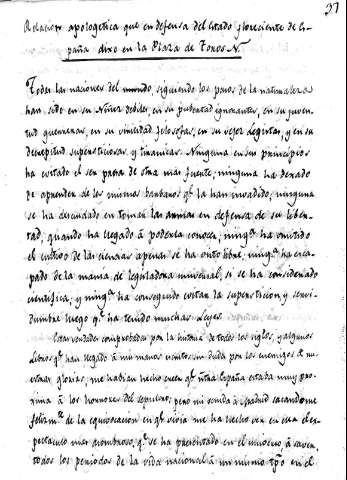 37
Relacion apologetica que en defensa del Estado floresiente de Es-
paña dixo en la Plaza de Toros N.
Todas las naciones del mundo, siguiendo los pasos de la naturaleza
han sido en su Niñez debiles, en su pubertad ignorantes, en su juven-
tud guerreras, en su virilidad filosofas, en su vejez legistas, y en su
decrepitud supersticiosas y tiranicas. Ninguna en sus principios
ha evitado el ser presa de otra mas fuerte, ninguna ha dexado
de aprender de los mismos barbaros qe. la han invadido, ninguna
se ha descuidado en tomar las armas en defensa de su liber-
tad, quando ha llegado á poderla conocer, ningª. ha omitido
el cultivo de las ciencias apenas se ha visto libre, ningª. ha esca-
pado de la mania de legisladora universal, si se ha considerado
cientifica, y ningª. ha conseguido evitar la supersticion y servi-
dumbre luego qe. ha tenido muchas Leyes.
Estas verdades comprobadas por la historia de todos los siglos, y algunos
Libros qe. han llegado á mis manos escritos sin duda por los enemigos de nu-
estras glorias, me habian hecho creer qe. ntra. España estaba muy pro-
xima á los horrores del sepulcro; pero mi venida á Madrid sacandome
felizmte. de la equivocacion en qe. vivia me ha hecho ver en ella el es-
pectaculo mas asombroso, qe. se ha presentado en el universo, á saver,
todos los periodos de la vida nacional á un mismo tpo. en el